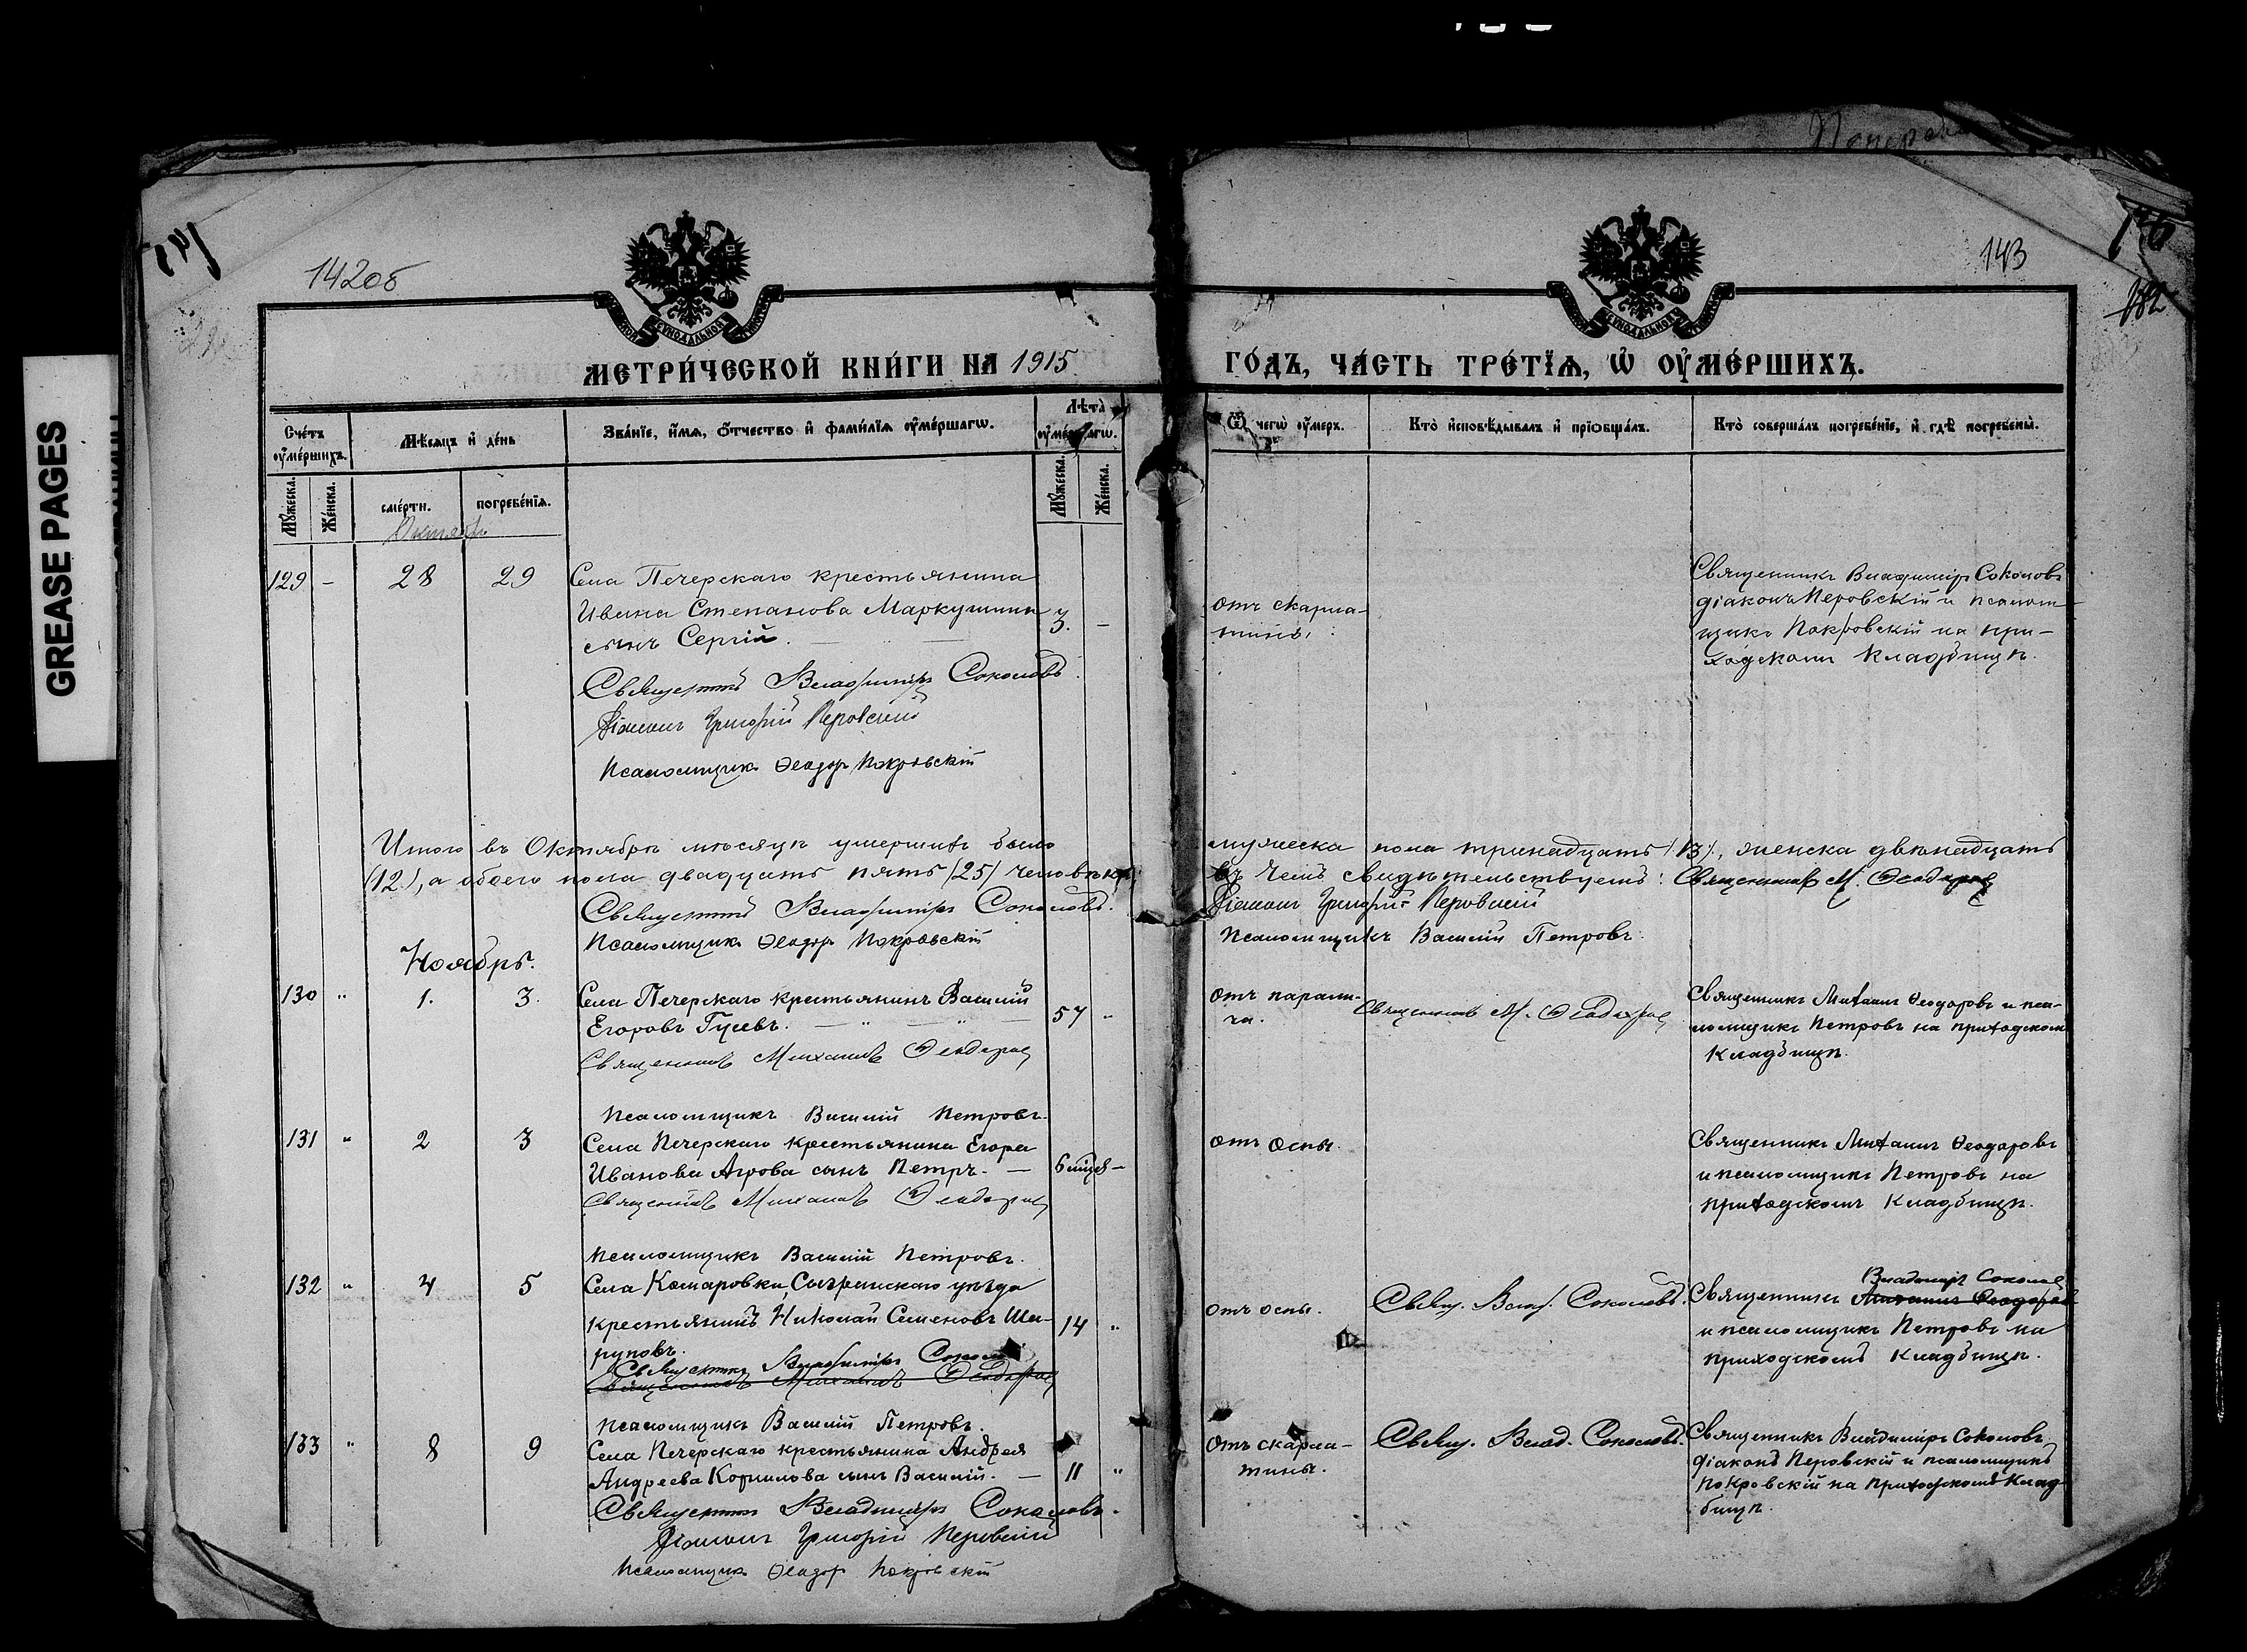 GREASE PAGES
142об
143
182
МЕТРИ́ЧЕСКОЙ КНИ́ГИ НА 1915
ГО́ДЪ, ЧА́СТЬ ТРЕ́ТЇѦ, Ѡ҆ ОУ҆МЕ́РШИХЪ.
Сче́тъ оу҆ме́ршихъ.
Мѣ́сяцъ и҆ де́нь
Зва́нїе, и҆́мѧ, ѻ҆́тчество и҆ фами́лїѧ оу҆ме́ршагѡ.
Лѣ́та оу҆ме́ршагѡ.
Ѿ чегѡ̀ оу҆́меръ.
Кто̀ и҆сповѣ́дывалъ и҆ прїѻбща́лъ.
Кто̀ соверша́лъ погребе́нїе, и҆ гдѣ̀ погребены̀.
Му́жеска.
Же́нска.
сме́рти.
погребе́нїѧ.
Му́жеска.
Же́нска.
Октябрь
129 - 28 29 Села Печерскаго крестьянина
Ивана Степанова Маркушина 3. -
сынъ Сергій.
Священникъ Владиміръ Соколовъ.
Діаконъ Григорій Перовскій
Псаломщикъ Ѳеодоръ Покровскій
отъ скарла-
тины.
Священникъ Владиміръ Соколовъ
діаконъ Перовскій и псалом-
щикъ Покровскій на при-
ходскомъ кладбищѣ.
Итого въ Октябрѣ мѣсяцѣ умершихъ было мужеска пола тринадцать (13), женска двѣнадцать
(12), а обоего пола двадцать пять (25) человѣкъ, въ чемъ свидѣтельствуемъ: Священникъ М. Ѳеодоровъ
Священникъ Владиміръ Соколовъ. Діаконъ Григорій Перовскій
Псаломщикъ Ѳеодоръ Покровскій Псаломщикъ Василій Петровъ.
Ноябрь.
130 " 1. 3. Села Печерскаго крестьянинъ Василій
Егоровъ Гусевъ. 57 "
Священникъ Михаилъ Ѳеодоровъ
Псаломщикъ Василій Петровъ.
отъ парали-
ча.
Священникъ М. Ѳеодоровъ
Священникъ Михаилъ Ѳеодоровъ и пса-
ломщикъ Петровъ на приходскомъ
кладбищѣ.
131 " 2 3 Села Печерскаго крестьянина Егора
Иванова Агрова сынъ Петръ. - 6 мцев -
Священникъ Михаилъ Ѳеодоровъ
Псаломщикъ Василій Петровъ.
отъ оспы.
Священникъ Михаилъ Ѳеодоровъ
и псаломщикъ Петровъ на
приходскомъ кладбищѣ.
132 " 4 5 Села Комаровки, Сызранскаго уѣзда
крестьянинъ Николай Семеновъ Ша- 14 "
руновъ.
Священникъ Владиміръ Соколовъ
Священникъ Михаилъ Ѳеодоровъ
Псаломщикъ Василій Петровъ.
отъ оспы.
Свящ. Влад. Соколовъ.
Владиміръ Соколовъ
Священникъ Михаилъ Ѳеодоровъ
и псаломщикъ Петровъ на
приходскомъ кладбищѣ.
133 " 8 9 Села Печерскаго крестьянина Андрея
Андреева Корнилова сынъ Василій. - 11 "
Священникъ Владиміръ Соколовъ.
Діаконъ Григорій Перовскій
Псаломщикъ Ѳеодоръ Покровскій
Отъ скарла-
тины.
Свящ. Влад. Соколовъ.
Священникъ Владиміръ Соколовъ
діаконъ Перовскій и псаломщикъ
Покровскій на приходскомъ клад-
бищѣ.